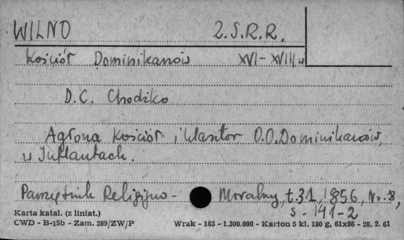 WILNO Z.S.R.R.
Kościół Dominikanów XVI-XVIII w
D.C. Chodźko
Aglona Kościół i klasztor O.O. Dominikanów,
w Inflantach.
Pamiętnik Religijno - Moralny, t.31, 1856, Nr. 8,
s - 191-2
Karta katal. (z liniat.)
CWD - B-15b - Zam. 289/ZW/P Wrak - 183 - 1.300.000 - Karton 5 kl. 180 g, 61x86 - 28. 2. 61